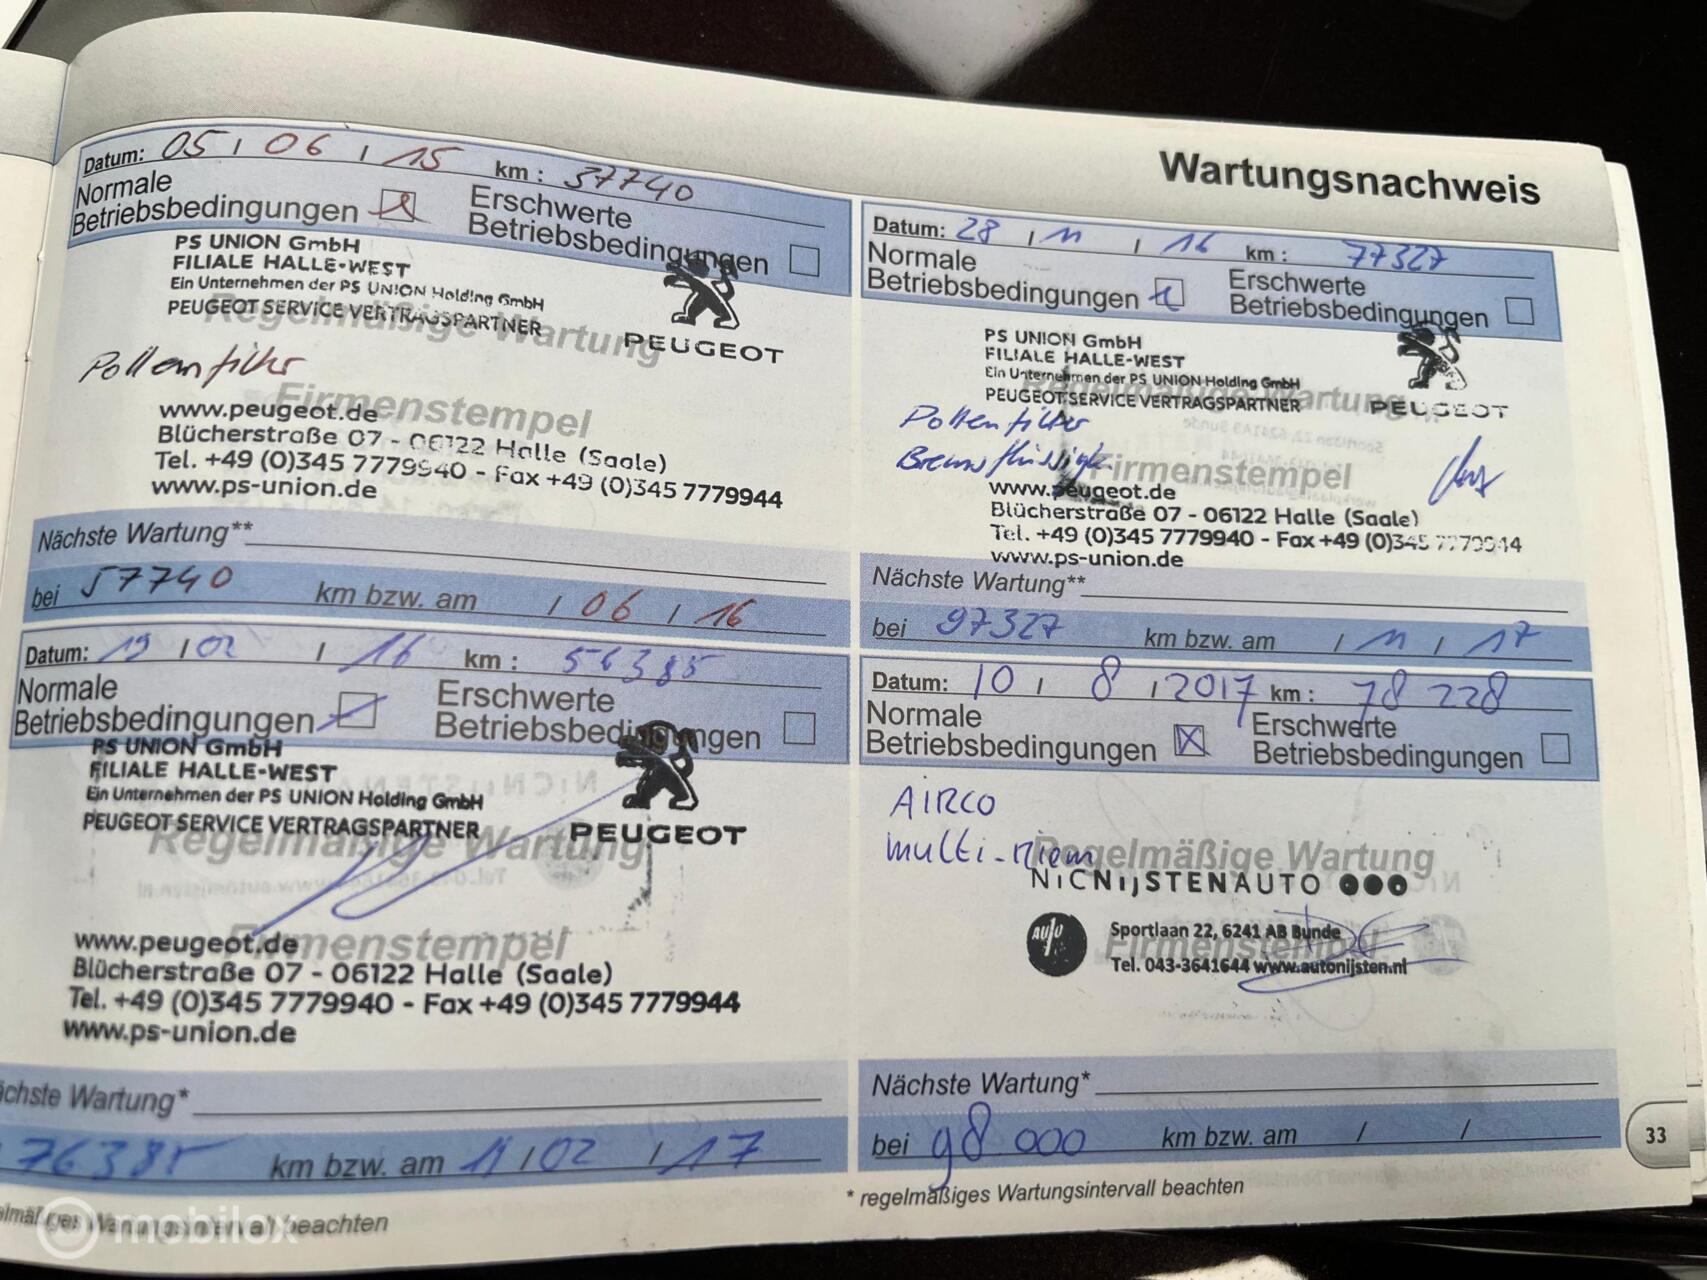 Wartungsnachweis
Datum: 05 / 06 / 15 km : 37740
Normale
Betriebsbedingungen
Erschwerte
Betriebsbedingungen
PS UNION GmbH
FILIALE HALLE-WEST
Ein Unternehmen der PS UNION Holding GmbH
PEUGEOT SERVICE VERTRAGSPARTNER
Regelmäßige Wartung
PEUGEOT
Pollenfilter
Firmenstempel
www.peugeot.de
Blücherstraße 07 - 06122 Halle (Saale)
Tel. +49 (0)345 7779940 - Fax +49 (0)345 7779944
www.ps-union.de
Nächste Wartung**
bei 57740 km bzw. am / 06 / 16
Datum: 19 / 02 / 16 km : 56385
Normale
Betriebsbedingungen
Erschwerte
Betriebsbedingungen
PS UNION GmbH
FILIALE HALLE-WEST
Ein Unternehmen der PS UNION Holding GmbH
PEUGEOT SERVICE VERTRAGSPARTNER
PEUGEOT
Regelmäßige Wartung
Firmenstempel
www.peugeot.de
Blücherstraße 07 - 06122 Halle (Saale)
Tel. +49 (0)345 7779940 - Fax +49 (0)345 7779944
www.ps-union.de
ächste Wartung*
76385 km bzw. am / 02 / 17
Wartungsintervall beachten
Datum: 28 / 11 / 16 km : 77327
Normale
Betriebsbedingungen
Erschwerte
Betriebsbedingungen
PS UNION GmbH
FILIALE HALLE-WEST
Ein Unternehmen der PS UNION Holding GmbH
PEUGEOT SERVICE VERTRAGSPARTNER
Regelmäßige Wartung
PEUGEOT
Pollenfilter
Firmenstempel
www.peugeot.de
Blücherstraße 07 - 06122 Halle (Saale)
Tel. +49 (0)345 7779940 - Fax +49 (0)345 7779944
www.ps-union.de
Nächste Wartung**
bei 97327 km bzw. am / 11 / 17
Datum: 10 / 8 / 2017 km : 78 228
Normale
Betriebsbedingungen
Erschwerte
Betriebsbedingungen
AIRCO
multi-riem
Regelmäßige Wartung
NICNIJSTENAUTO
AUTO
Sportlaan 22, 6241 AB Bunde
Firmenstempel
Tel. 043-3641644 www.autonijsten.nl
Nächste Wartung*
bei 98 000 km bzw. am / /
* regelmäßiges Wartungsintervall beachten
33
mobilox